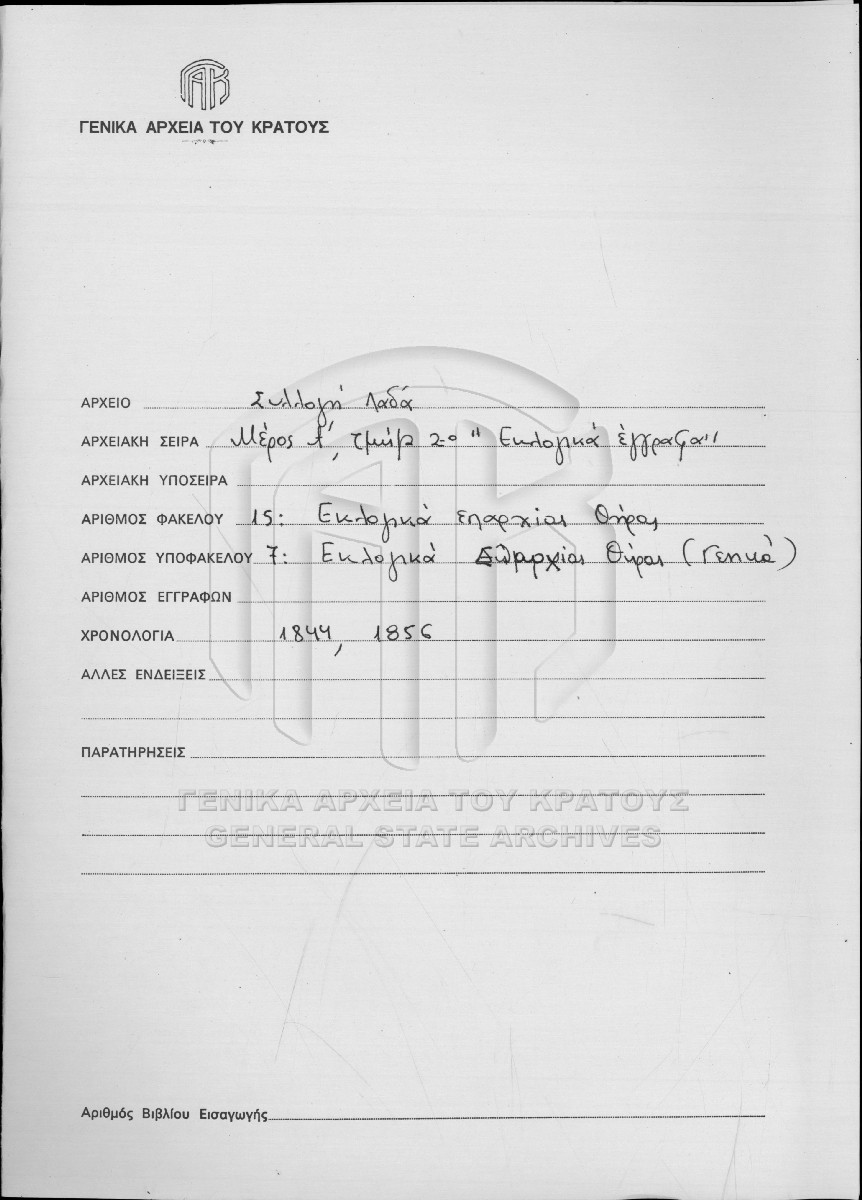 ΓΑΚ
ΓΕΝΙΚΑ ΑΡΧΕΙΑ ΤΟΥ ΚΡΑΤΟΥΣ
ΑΡΧΕΙΟ Συλλογή Λαδά
ΑΡΧΕΙΑΚΗ ΣΕΙΡΑ Μέρος Α', τμήμα 2ο "Εκλογικά έγγραφα"
ΑΡΧΕΙΑΚΗ ΥΠΟΣΕΙΡΑ
ΑΡΙΘΜΟΣ ΦΑΚΕΛΟΥ 15: Εκλογικά επαρχίας Θήρας
ΑΡΙΘΜΟΣ ΥΠΟΦΑΚΕΛΟΥ 7: Εκλογικά Επαρχίας Θήρας (Γενικά)
ΑΡΙΘΜΟΣ ΕΓΓΡΑΦΩΝ
ΧΡΟΝΟΛΟΓΙΑ 1844, 1856
ΑΛΛΕΣ ΕΝΔΕΙΞΕΙΣ
ΠΑΡΑΤΗΡΗΣΕΙΣ
ΓΕΝΙΚΑ ΑΡΧΕΙΑ ΤΟΥ ΚΡΑΤΟΥΣ
GENERAL STATE ARCHIVES
Αριθμός Βιβλίου Εισαγωγής